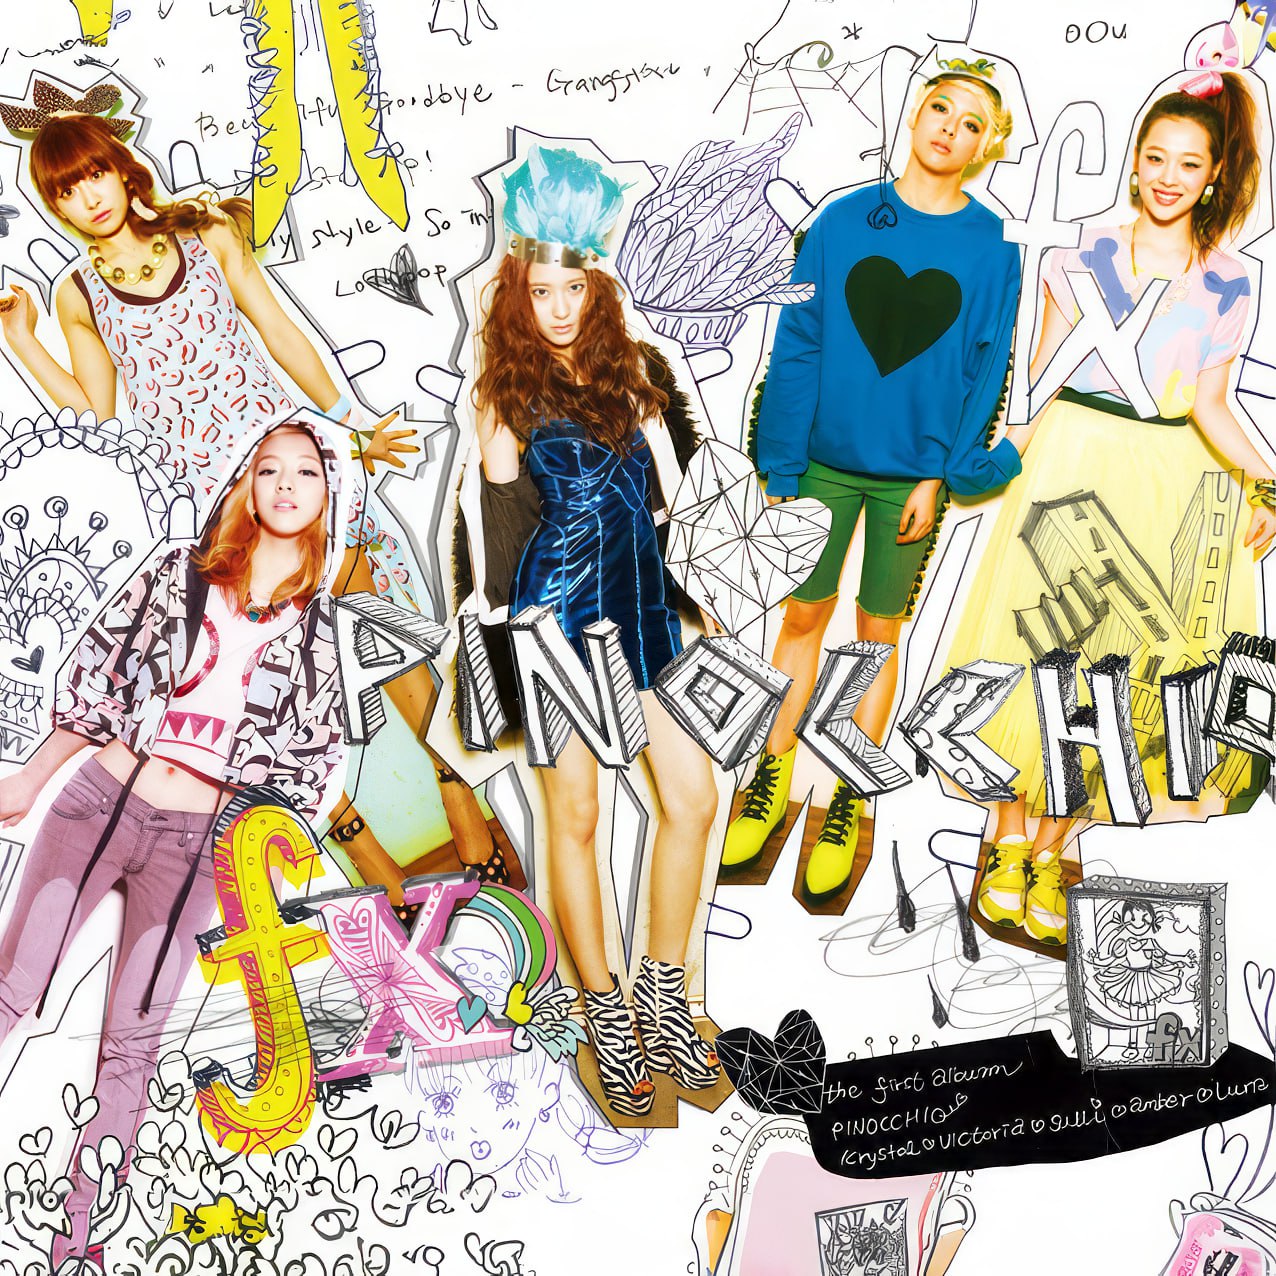 oou
Goodbye - Gangsta
My style - So in
fx
PINOCCHIO
fx
fx
the first album
PINOCCHIO
Krystal victoria sulli amber luna